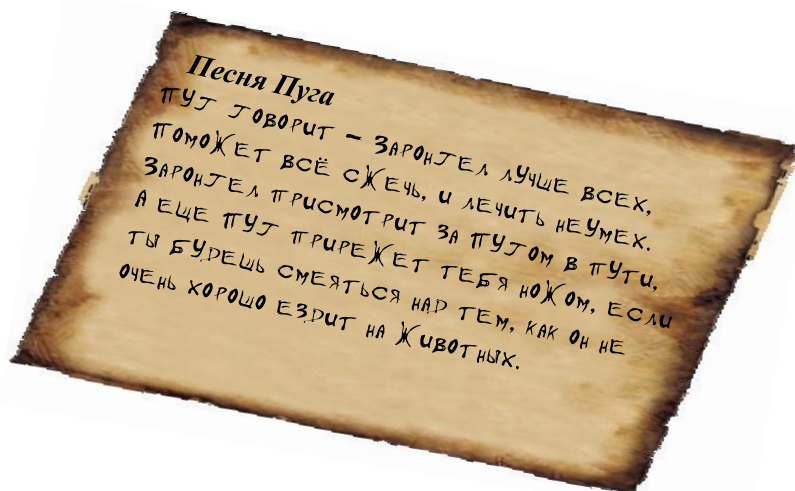 Песня Пуга
Пуг говорит – Заронгел лучше всех,
Поможет всё сжечь, и лечить неумех.
Заронгел присмотрит за Пугом в пути,
А еще Пуг прирежет тебя ножом, если
ты будешь смеяться над тем, как он не
очень хорошо ездит на животных.